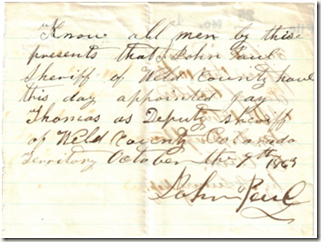 "Know all men by these
presents that I John Paul
Sheriff of Weld County have
this day appointed Jay
Thomas as Deputy sheriff
of Weld County Colorado
Territory October the 7th
John Paul